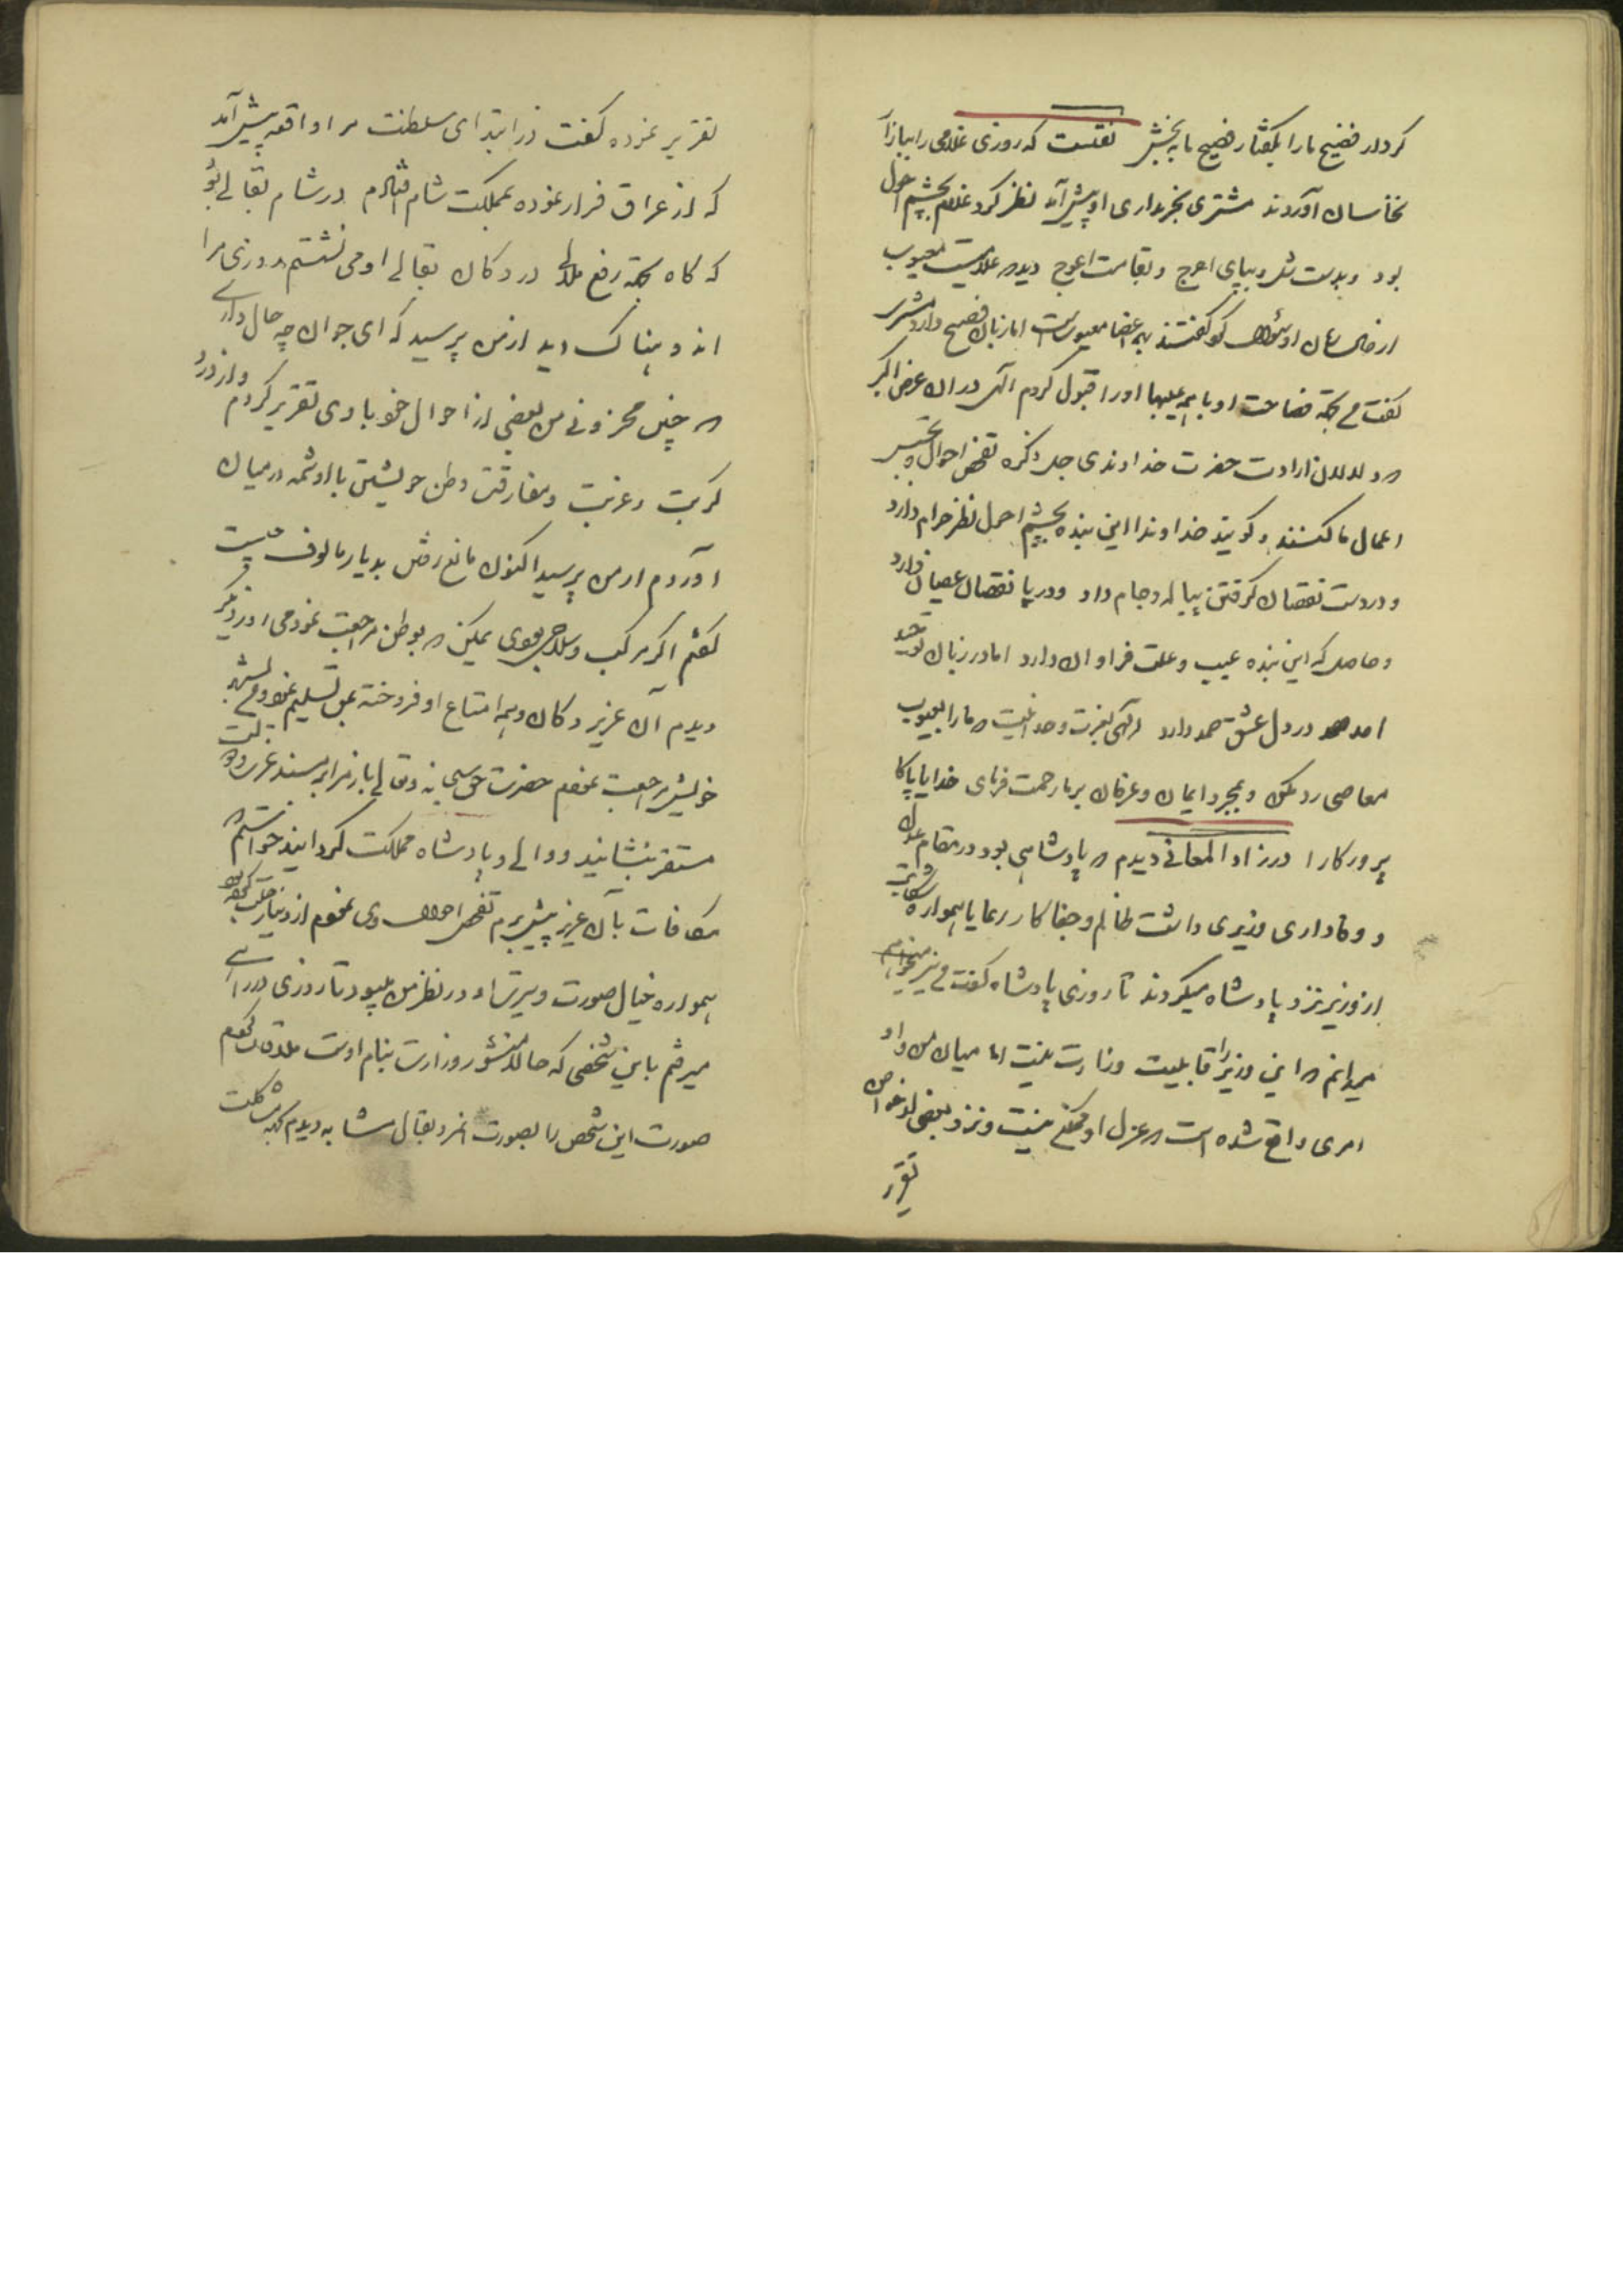 کردار فضیح ما را بگفتار فصیح ما ببخش نقلست که روزی غلامی را ببازار
نخاسان آوردند مشتری بخریداری او پیش آمد نظر کرد غلام بچشم احول
بود و بدست شل و بپای اعرج و بقامت اعوج دید که غلامیست معیوب
از او سؤال کرد گفتند همه اعضا معیوبست اما زبان فصیح دارد مشتری
گفت من بجهة فصاحت او با همه عیبها او را قبول کردم الهی در ان عرض اکبر
که دلالان ارادت حضرت خداوندی جل ذکره تفحص احوال و تجسس
اعمال ما کنند و گویند خداوندا این بنده بچشم احول نظر حرام دارد
و در دست نقصان گرفتن پیاله و جام دارد و در پا نقصان عصیان دارد
و حاصل که این بنده عیب و علت فراوان دارد اما در زبان توحید
احد و در دل عشق صمد دارد الهی بعزت وحدانیت که ما را بعیوب
معاصی رد مکن و بمجرد ایمان و عرفان بر ما رحمت فرمای خدایا پاکا
پرورکارا در زاد المعانی دیدم که پادشاهی بود در مقام عدل
و وفاداری وزیری داشت ظالم و جفا کار رعایا همواره شکایت
از وزیر نزد پادشاه میکردند تا روزی پادشاه گفت من نیز
میدانم که این وزیر را قابلیت وزارت نیست اما میان من و او
امری واقع شده است که عزل او ممکن نیست و نزد بعضی از خواص
تقریر
تقریر نموده گفت در ابتدای سلطنت مرا واقعه پیش آمد
که از عراق فرار نموده بمملکت شام افتادم در شام بقالی بود
که گاه بجهة رفع ملال در دکان بقالی او می نشستم روزی مرا
اندوهناک دید از من پرسید که ای جوان چه حال داری
که چنین محزونی من بعضی از احوال خود با وی تقریر کردم و از درد
کربت و غربت و مفارقت وطن خویشتن با او شمه در میان
آوردم از من پرسید اکنون مانع رفتن بدیار مالوف چیست
گفتم اگر مرکب و سلاح بودی ممکن که بوطن مراجعت نمودمی روز دیگر
دیدم آن عزیز دکان و همه امتاع او فروخته بمن تسلیم نمود و من بشهر
خویش مراجعت نمودم حضرت حق سبحانه و تعالی باز مرا بر مسند عزت و دولت
مستقر بنشانید و والی و پادشاه مملکت گردانید خواستم که
مکافات بآن عزیز پیش برم تفحص احوال وی نمودم از دنیا رحلت
همواره خیال صورت و سیرت او در نظر من میبود تا روزی در راهی
میرفتم باین شخص که حالا منشور وزارت بنام اوست ملاقات کردم
صورت این شخص را بصورت آنمرد بقال مشابه دیدم